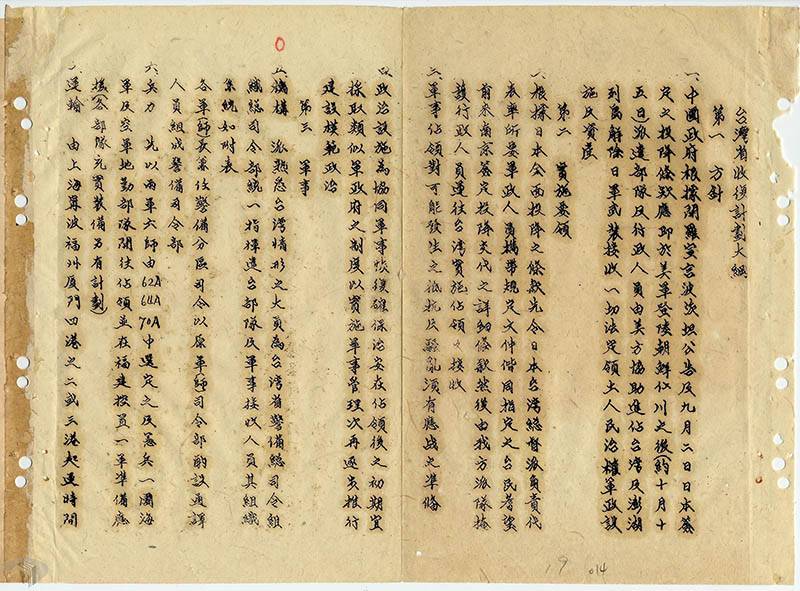 台灣省收復計劃大綱
第一　方針
一、中國政府根據開羅宣言波茨坦公告及九月二日日本簽
定之投降條款應即於美軍登陸朝鮮仁川之後(約十月十
五日)派遣部隊及行政人員由美方協助進佔台灣及澎湖
列島解除日軍武裝接收一切法定領土人民治權軍政設
施民資產
第二　實施要領
二、根據日本全面投降之條款先令日本台灣總督派負責代
表率所要軍政人員攜帶規定文件偕同指定之台民著望
前來南京簽定投降交代之詳細條款然後由我方派隊掩
護行政人員運往台灣實施佔領與接收
三、軍事佔領對可能發生之抵抗及騷亂須有應戰之準備
四、政治設施為協同軍事恢復確保治安在佔領後之初期宜
採取類似軍政府之制度以實施軍事管理次再逐步推行
建設模範政治
第三　軍事
五、機構　派熟悉台灣情形之大員為台灣省警備總司令組
織總司令部統一指揮進台部隊及軍事接收人員其組織
系統如附表
各軍(師)長兼任警備分區司令以原軍(師)司令部酌設通譯
人員組成警備司令部
六、兵力　先以兩軍六師由62A 64A 70A中選定之及憲兵一團海
軍及空軍地勤部隊開往佔領並在福建控置一軍準備應
援(各部隊充實裝備另有計劃)
七、運輸　由上海寧波福州廈門四港之二或三港起運時間
19　014